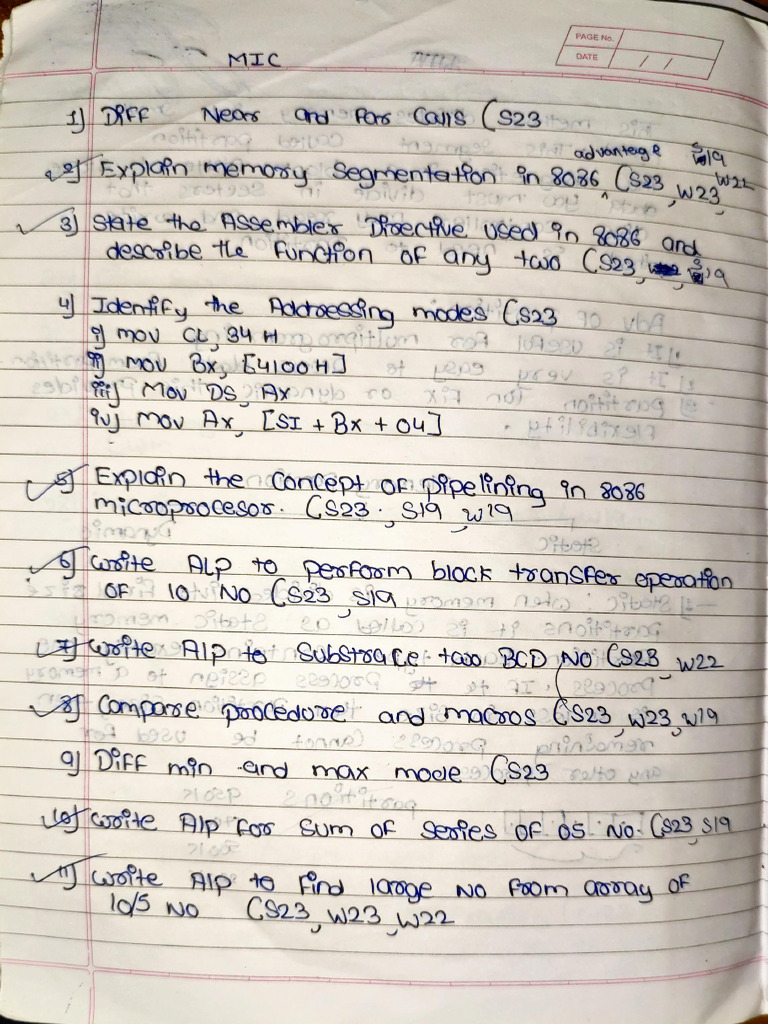 MIC
PAGE No.
DATE / /
1) Diff Near and Far Calls (S23
advantage S19
2) Explain memory Segmentation in 8086 ^ (S23, W23, W22
3) State the Assembler Directive used in 8086 and
describe the function of any two (S23, S19
4) Identify the Addressing modes (S23
i) mov CL, 34 H
ii) mov Bx, [4100H]
iii) Mov DS, Ax
iv) mov Ax, [SI + Bx + 04]
5) Explain the concept of pipelining in 8086
microprocesor. (S23, S19, W19
6) Write ALP to perform block transfer operation
of 10 NO (S23, S19
7) Write Alp to Substrace two BCD NO (S23, W22
8) Compare procedure and macros (S23, W23, W19
9) Diff min and max mode (S23
10) Write Alp for sum of series of 05 No. (S23, S19
11) Write Alp to find large No from array of
10/5 NO (S23, W23, W22